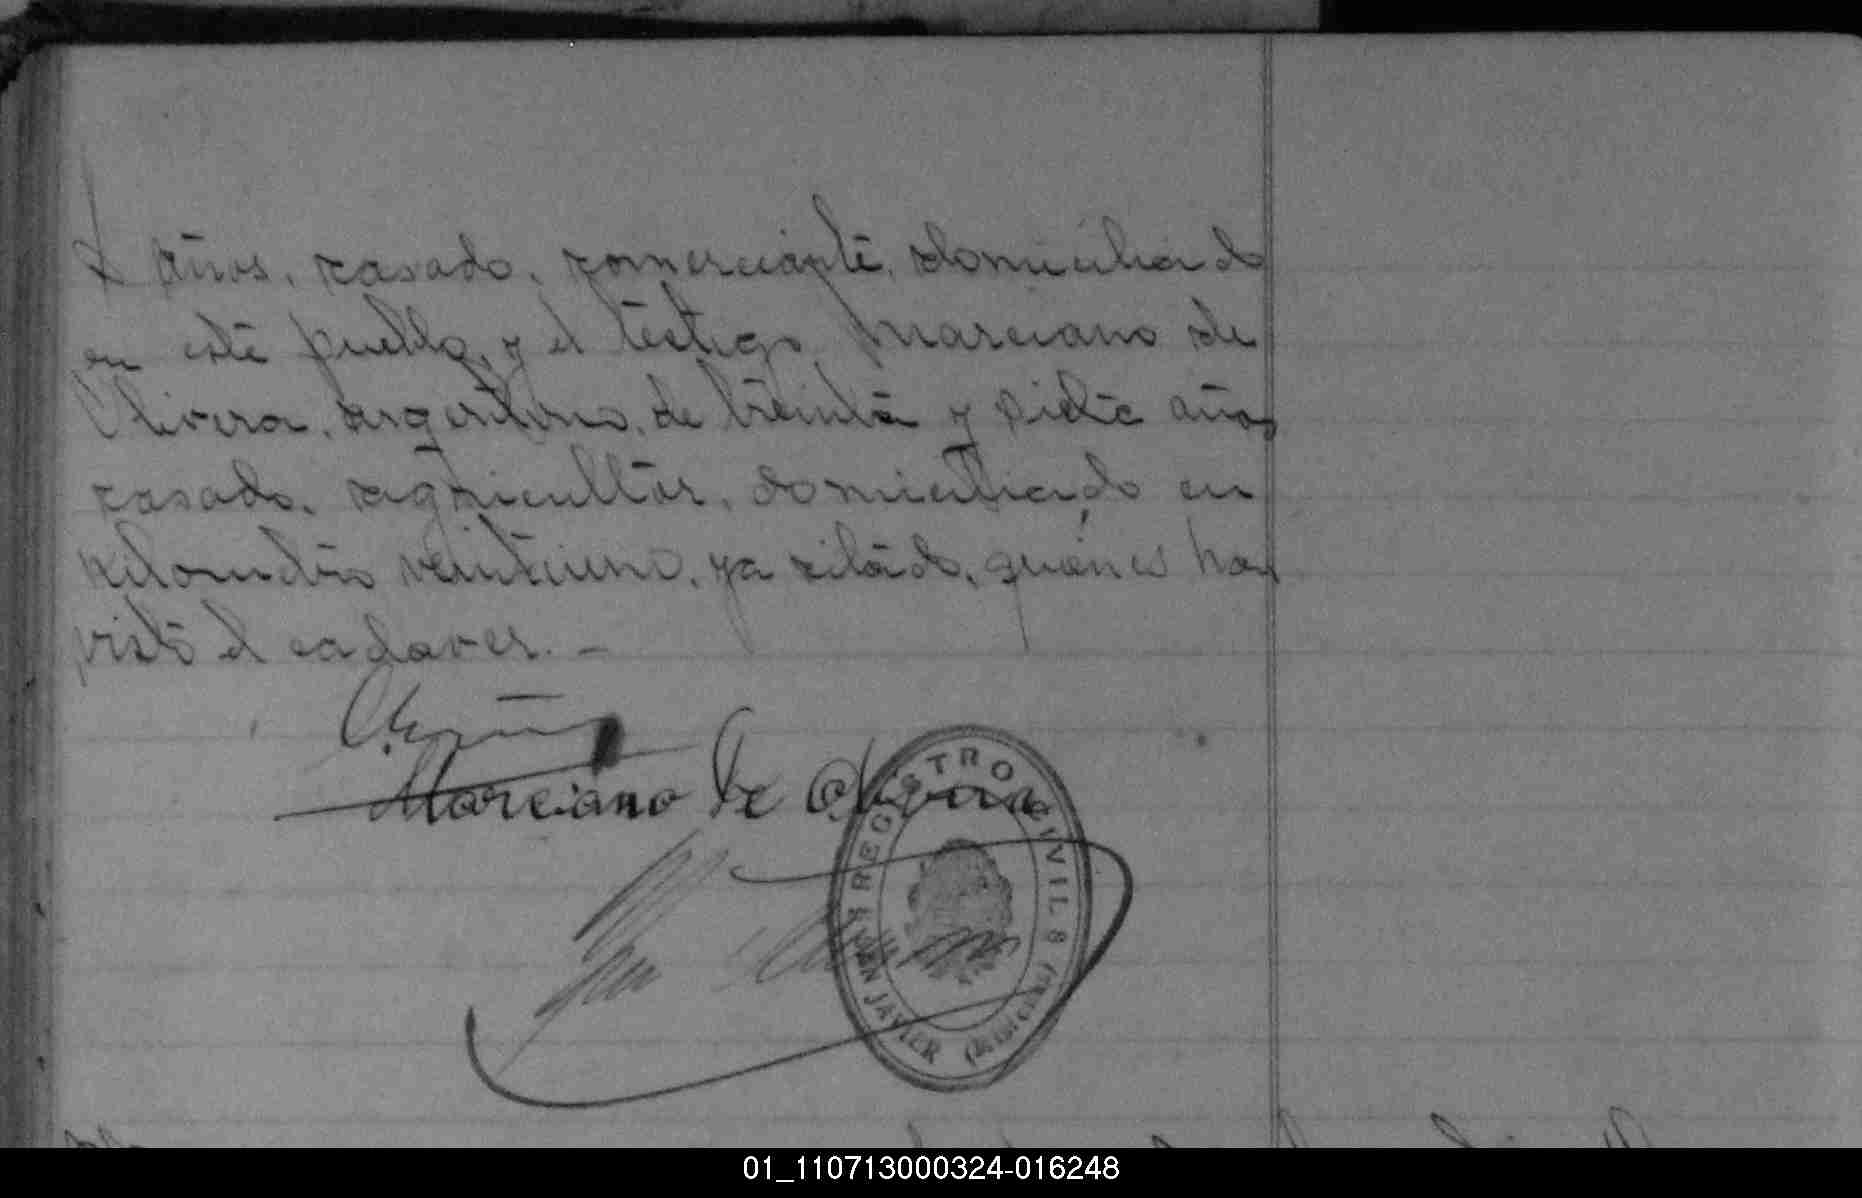 años, casado, comerciante, domiciliado
en este pueblo, y el testigo Marciano de
Olivera, argentino, de treinta y siete años
casado, agricultor, domiciliado en
kilometro veintiuno, ya citado, quienes han
visto el cadaver. -
Marciano de Olivera
REGISTRO CIVIL
SAN JAVIER (MISIONES)
01_110713000324-016248